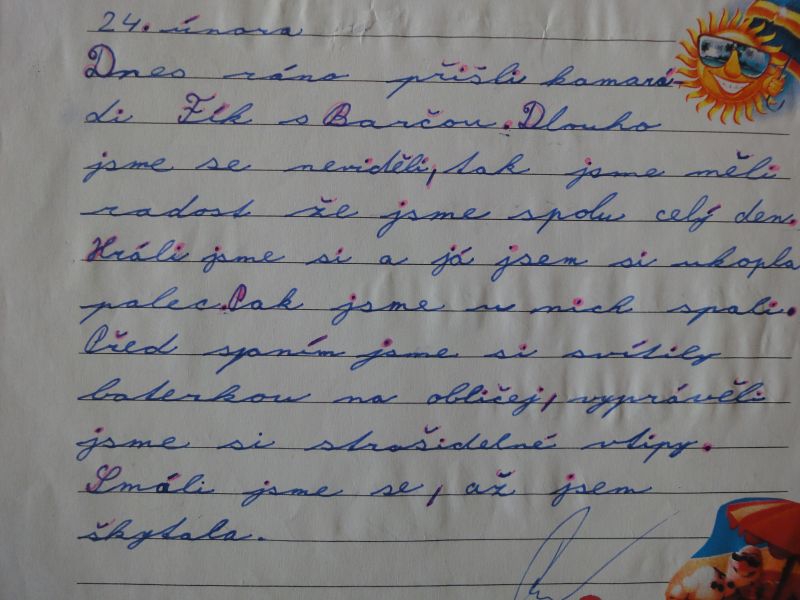 24. února
Dnes ráno přišli kamará-
di Fík s Barčou. Dlouho
jsme se neviděli, tak jsme měli
radost že jsme spolu celý den.
Hráli jsme si a já jsem si ukopla
palec. Pak jsme u nich spali.
Před spaním jsme si svítily
baterkou na obličej, vyprávěli
jsme si strašidelné vtipy.
Smáli jsme se, až jsem
škytala.